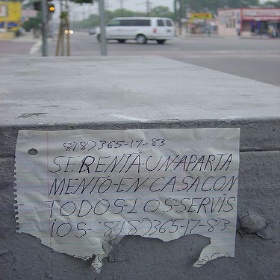 818)365-17-83
SE RENTA UN APARTA
MENTO-EN-CASA CON
TODOS-LOS SERVIS
IOS-818)365-17-83